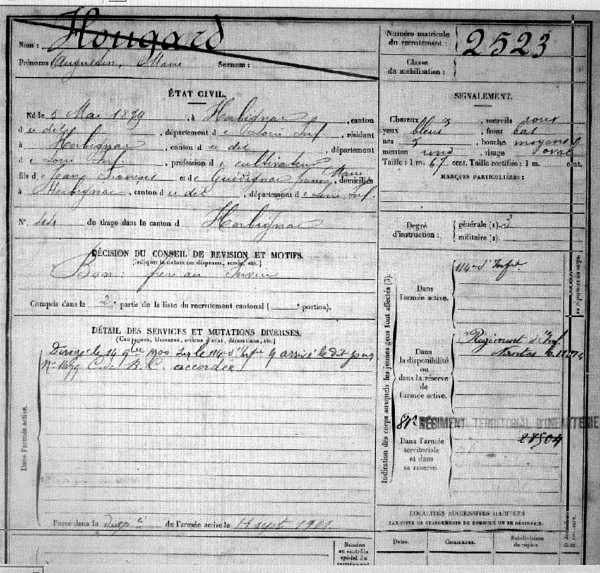 Nom : Hougard
Prénoms : Augustin, Marie Surnom :
Numéro matricule
du recrutement : 2523
Classe
de mobilisation :
ÉTAT CIVIL.
Né le 5 Mai 1879, à Herbignac, canton
du dit, département de Loire Inf., résidant
à Herbignac, canton du dit, département
de Loire Inf., profession de cultivateur
fils de Jean François et de Guédignac Jeanne Marie, domiciliés
à Herbignac, canton du dit, département de Loire Inf.
N° de tirage dans le canton d Herbignac
SIGNALEMENT.
Cheveux sourcils roux
yeux bleus, front bas
nez bouche moyenne
menton rond visage oval
Taille : 1 m. 67 cent. Taille rectifiée : 1 m. cent.
MARQUES PARTICULIÈRES :
Degré
d'instruction :
générale (1) 3
militaire (2)
DÉCISION DU CONSEIL DE REVISION ET MOTIFS.
Bon frère au
Compris dans la 2e partie de la liste du recrutement cantonal ( portion).
DÉTAIL DES SERVICES ET MUTATIONS DIVERSES.
(Campagnes, blessures, actions d'éclat, décorations, etc.)
Dirigé le 14 9bre 1900 sur le 114e d'Infie y arrivé le dit jour
C. de B. C. accordé
Passé dans la dispté de l'armée active le 14 sept 1901
Dans l'armée active.
Indication des corps auxquels les jeunes gens sont affectés
114e d'Infie
Dans
l'armée active.
Régiment d'Inf.
Nantes
Dans
la disponibilité
ou dans
la réserve
de l'armée
active.
81e RÉGIMENT TERRITORIAL D'INFANTERIE
Dans l'armée
territoriale
et dans
sa réserve.
LOCALITÉS SUCCESSIVES HABITÉES
PAR SUITE DE CHANGEMENTS DE DOMICILE OU DE RÉSIDENCE.
Dates. Communes. Subdivisions
de région.
Numéros
au contrôle
spécial du
recrutement